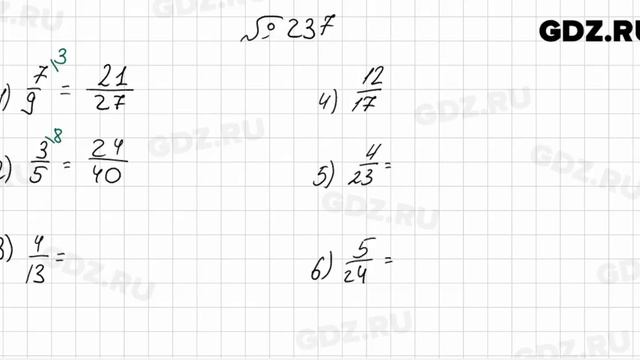 № 237
GDZ.RU
1) 7/9 \3 = 21/27
2) 3/5 \8 = 24/40
3) 4/13 =
4) 12/17
5) 4/23 =
6) 5/24 =
GDZ.RU
GDZ.RU
GDZ.RU
GDZ.RU
GDZ.RU
GDZ.RU